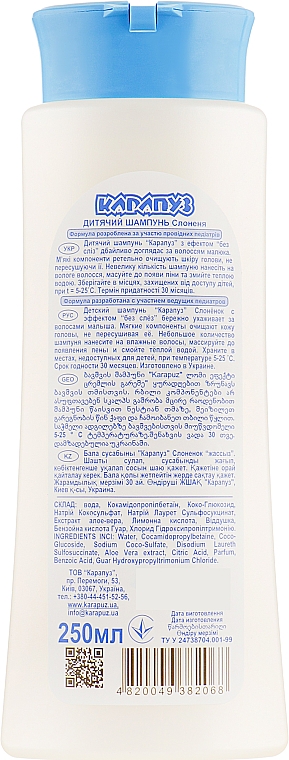 КАРАПУЗ
ДИТЯЧИЙ ШАМПУНЬ Слоненя
Формула розроблена за участю провідних педіатрів
УКР Дитячий шампунь "Карапуз" з ефектом "без
сліз" дбайливо доглядає за волоссям малюка.
М'які компоненти ретельно очищують шкіру голови, не
пересушуючи її. Невелику кількість шампуню нанесіть на
вологе волосся, масуйте до появи піни та змийте теплою
водою. Зберігати в місцях, захищених від доступу дітей,
при t = 5-25˚С. Термін придатності 30 місяців.
Формула разработана с участием ведущих педиатров
РУС Детский шампунь "Карапуз" Слонёнок с
эффектом "без слёз" бережно ухаживает за
волосами малыша. Мягкие компоненты очищают кожу
головы, не пересушивая её. Небольшое количество
шампуня нанесите на влажные волосы, массируйте до
появления пены и смойте теплой водой. Храните в
местах, недоступных для детей, при температуре 5-25˚С.
Срок годности 30 месяцев. Изготовлено в Украине.
GEO ბავშვის შამპუნი "Karapuz"
5-25 ° C
KZ Бала сусабыны "Карапуз" Слоненок "жассыз".
Шашты сулап, сусабынды жағып
көбіктенгенше уқалап сосын шаю қажет. Қажетіне орай
қайталау керек. Бала қолы жетпейтін жерде сақтау қажет.
Жарамдылық мерзімі 30 ай. Өндіруші ЖШАҚ "Карапуз",
Киев қ-сы, Украина.
СКЛАД: вода, Кокамідопропілбетаїн, Коко-Глюкозид,
Натрій Кокосульфат, Натрій Лаурет Сульфосукцинат,
Екстракт алое-вера, Лимонна кислота, Віддушка,
Бензойна кислота Гуар, Хлорид Гідроксипропілтримонію.
INGREDIENTS INCI: Water, Cocamidopropylbetaine, Coco-
Glucoside, Sodium Coco-Sulfate, Disodium Laureth
Sulfosuccinate, Aloe Vera extract, Citric Acid, Parfum,
Benzoic Acid, Guar Hydroxypropyltrimonium Chloride.
ТОВ "Карапуз",
пр. Перемоги, 53,
Київ, 03067, Україна
тел.: +380-44-451-52-56,
www.karapuz.ua
karapuz@karapuz.ua
250мл
Дата виготовлення
Дата изготовления
Өндіру мерзімі
ТУ У 24738704.001-99
4 820049 382068